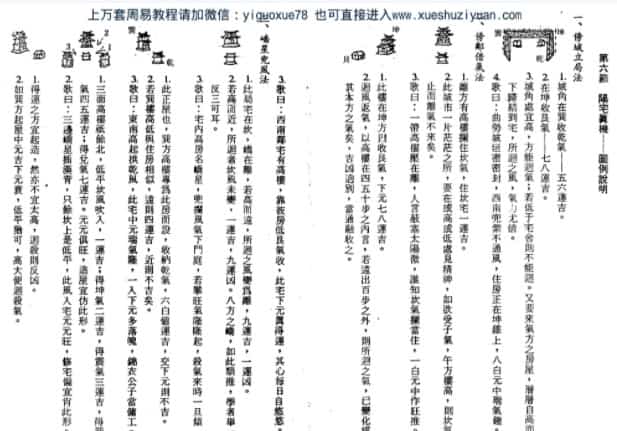 上万套周易教程请加微信：yiguoxue78 也可直接进入www.xueshuziyuan.com
第六節 陽宅真機——圖例說明
一、傍城立局法
1.城角在巽收乾氣——五六運吉。
2.在坤收艮氣——七八運吉。
3.城角處宜高，方能迴氣；若低于宅舍則不能迴。又要來氣方之房屋，層層自高而
下歸結到宅，所迴之風，氣力尤倍。
4.歌曰：曲勢城垣密密封，西南兜緊不通風，住房正在坤維上，八白元中瑞氣鍾。
二、傍鄰借氣法
1.離方有高樓攔住坎氣，住坎宅一運吉。
2.此城市一片茫茫之所，要在或高或低處見精神，如欲受子氣，午方樓高，則坎氣
止而離氣不來矣。
3.歌曰：一帶高樓壓在離，人言蔽塞太陽微，誰知坎氣攔當住，一白元中作旺推。
1.此樓在坤方回收艮氣，下元七八運吉。
2.迴風返氣，以高樓在四五十步之內言，若遠出百步之外，則所迴之氣，已變化成
其本方之氣矣，吉凶迥別，當通融收之。
3.歌曰：西南鄰宅有高樓，靠彼房低艮氣收，此宅下元真得運，其心每日自悠悠。
三、嶠星兜風法
1.此局宅在坎，嶠在離，若高而遠，所迴之風變爲離，九運吉，一運凶。
2.若高而近，所迴者坎風未變，一運吉，九運凶。八方之嶠，如此類推，學者舉一
反三可耳。
3.歌曰：宅內高房名嶠星，兜攔風氣下門庭，若攀旺氣隆隆起，殺氣來時一旦傾。
1.此正屋也，巽方高樓專爲此房而設，收納乾氣，六白値運吉，交下元則不吉。
2.若巽樓高低與住房相似，遠則四運吉，近則不吉矣。
3.歌曰：東南高起拱乾風，此宅中元瑞氣隆，一入下元多落魄，錦衣公子當傭工。
1.三面高樓砥餘北，低平坎風吹入，一運吉；得坤氣二運吉，得震氣三運吉，得巽
氣四五運吉；得兌氣七運吉。元元俱旺，造屋宜仿此形。
2.歌曰：三邊嶠星插漢青，只餘坎上是低平，此風入宅元元旺，修宅偏宜肖此形。
1.得運之方宜起造，然亦不宜太高，迴殺則反凶。
2.如巽方起屋中元吉下元衰，低平猶可，高大便迴殺氣。